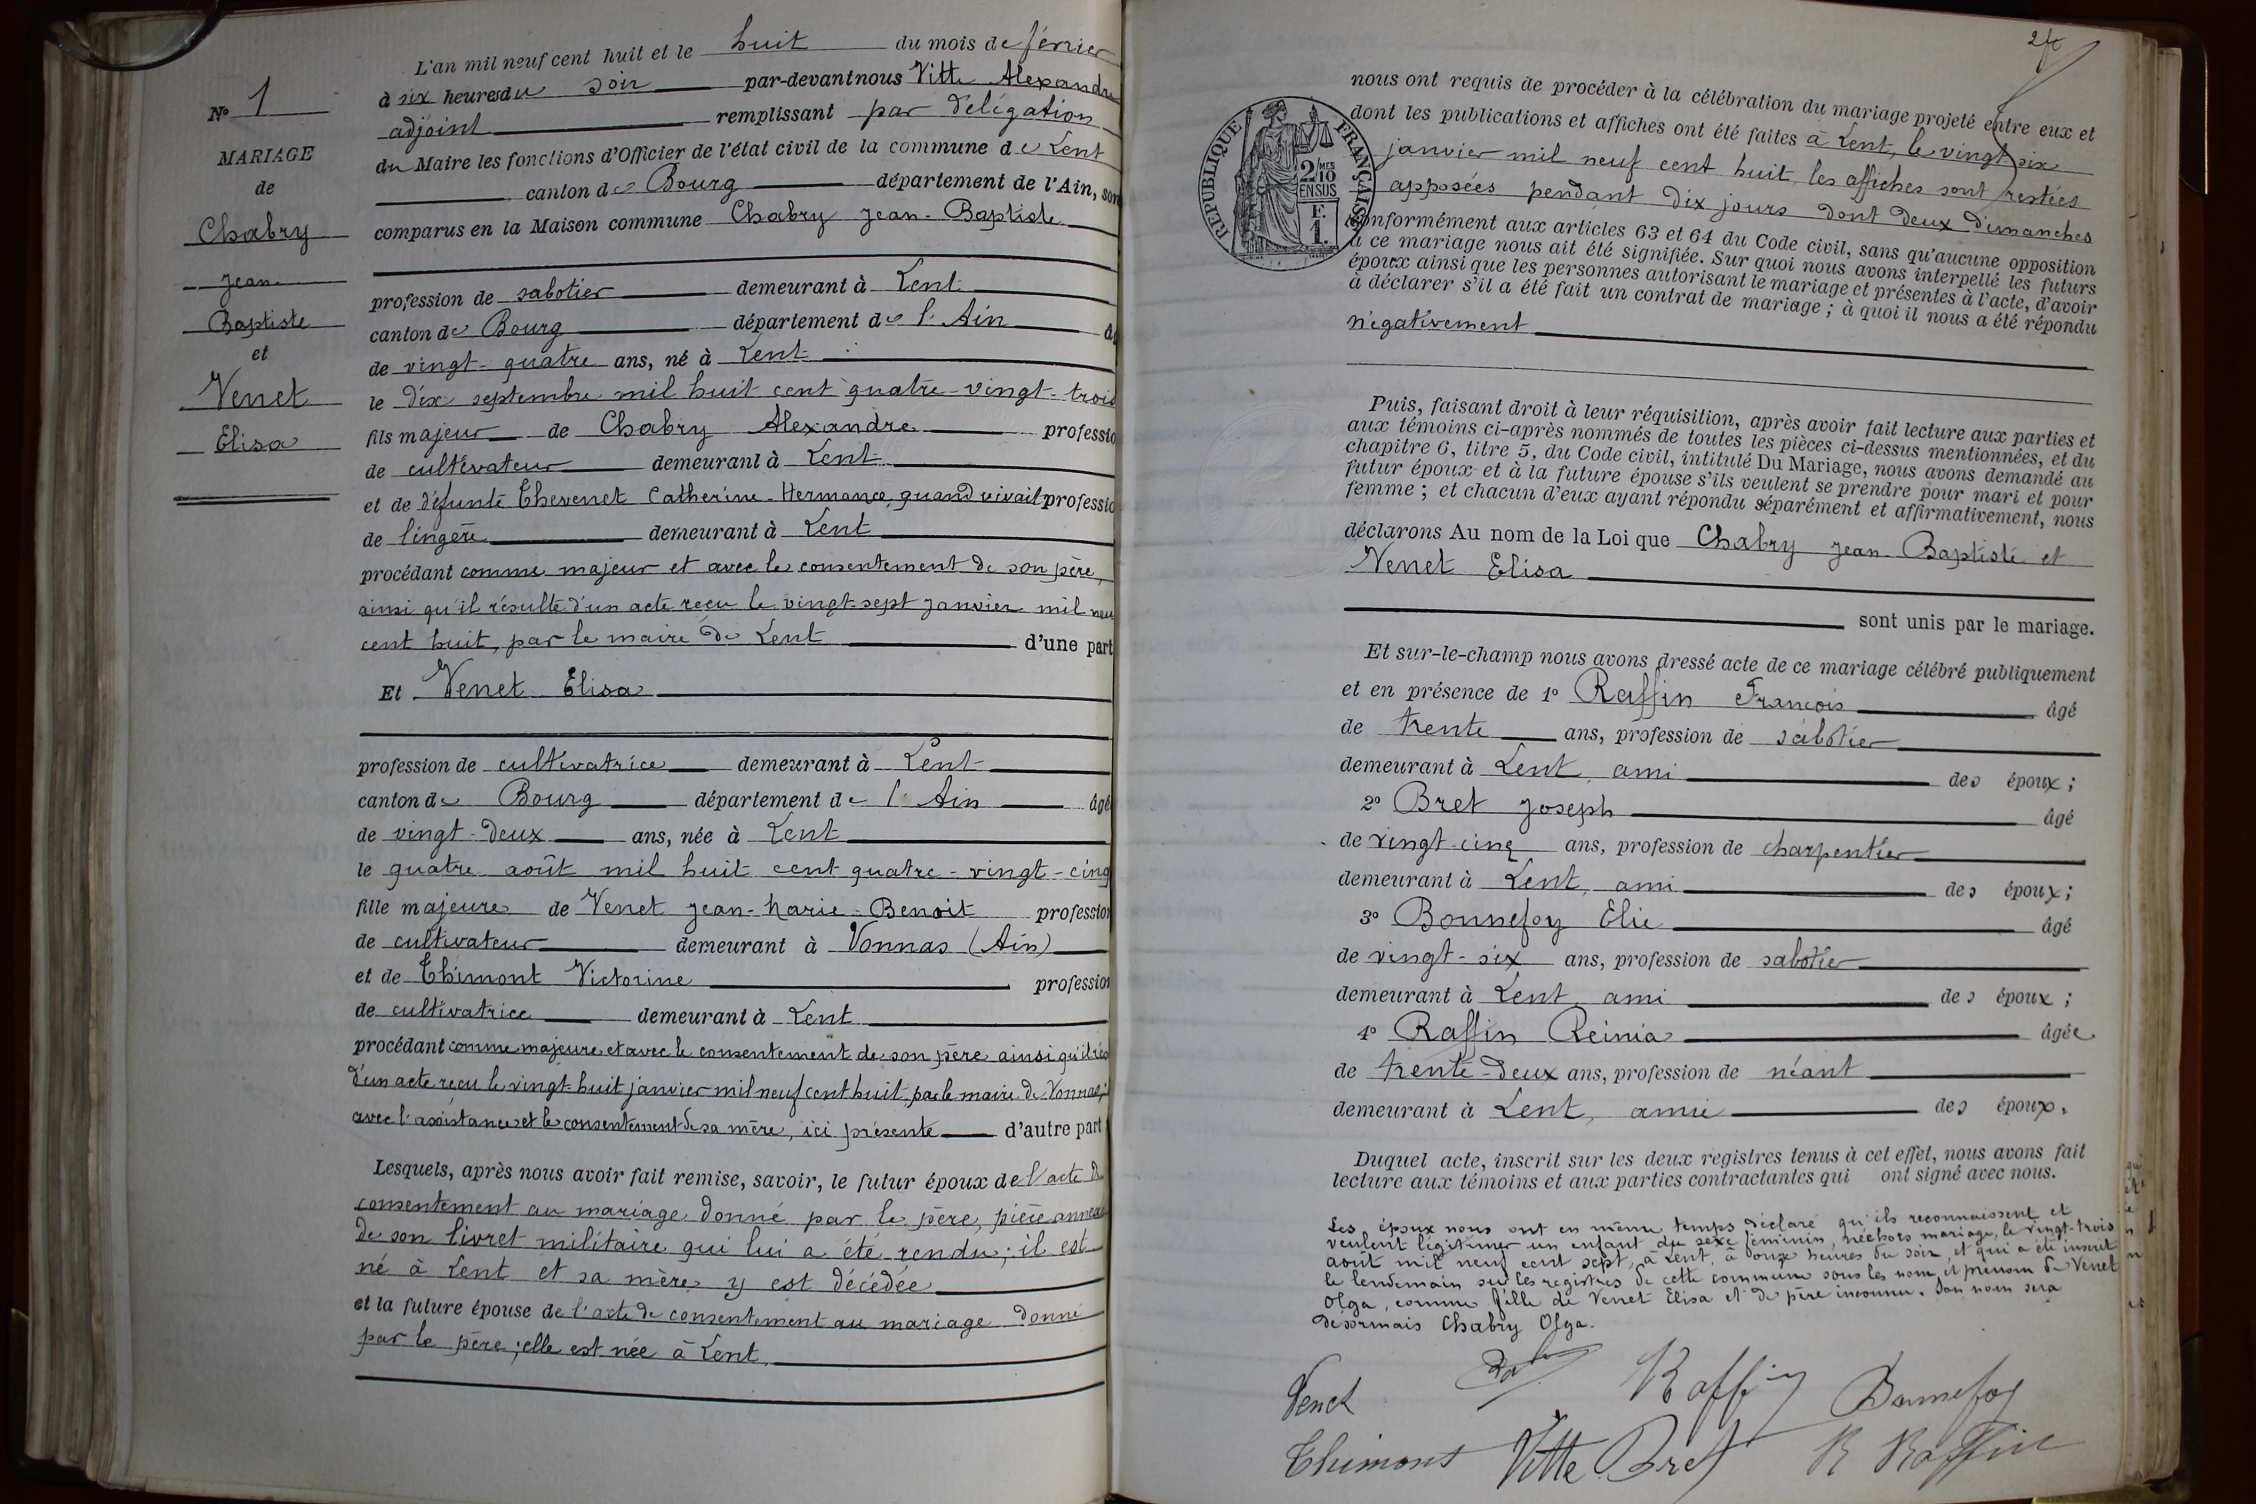 L'an mil neuf cent huit et le huit du mois de février
à six heures du soir par-devant nous Vitte Alexandre
adjoint remplissant par délégation
du Maire les fonctions d'Officier de l'état civil de la commune de Lent
canton de Bourg département de l'Ain, sont
comparus en la Maison commune Chabry Jean-Baptiste
profession de sabotier demeurant à Lent
canton de Bourg département de l'Ain
de vingt-quatre ans, né à Lent
le dix septembre mil huit cent quatre-vingt-trois
fils majeur de Chabry Alexandre profession
de cultivateur demeurant à Lent
et de défunte Thevenet Catherine-Hermance, quand vivait profession
de lingère demeurant à Lent
procédant comme majeur et avec le consentement de son père,
ainsi qu'il résulte d'un acte reçu le vingt-sept janvier mil neuf
cent huit, par le maire de Lent d'une part
Et Venet Elisa
profession de cultivatrice demeurant à Lent
canton de Bourg département de l'Ain âgé
de vingt-deux ans, née à Lent
le quatre août mil huit cent quatre-vingt-cinq
fille majeure de Venet Jean-Marie-Benoit profession
de cultivateur demeurant à Vonnas (Ain)
et de Thimont Victorine profession
de cultivatrice demeurant à Lent
procédant comme majeure et avec le consentement de son père ainsi qu'il rés
d'un acte reçu le vingt-huit janvier mil neuf cent huit, par le maire de Vonnas,
avec l'assistance et le consentement de sa mère, ici présente d'autre part
Lesquels, après nous avoir fait remise, savoir, le futur époux de l'acte de
consentement au mariage donné par le père, pièce annexée
de son livret militaire qui lui a été rendu; il est
né à Lent et sa mère y est décédée
et la future épouse de l'acte de consentement au mariage donné
par le père; elle est née à Lent
No 1
MARIAGE
de
Chabry
Jean
Baptiste
et
Venet
Elisa
RÉPUBLIQUE FRANÇAISE
2/10 MES
EN SUS
F.
1.
nous ont requis de procéder à la célébration du mariage projeté entre eux et
dont les publications et affiches ont été faites à Lent, le vingt six
janvier mil neuf cent huit, les affiches sont restées
apposées pendant dix jours dont deux dimanches
conformément aux articles 63 et 64 du Code civil, sans qu'aucune opposition
à ce mariage nous ait été signifiée. Sur quoi nous avons interpellé les futurs
époux ainsi que les personnes autorisant le mariage et présentes à l'acte, d'avoir
à déclarer s'il a été fait un contrat de mariage; à quoi il nous a été répondu
négativement
Puis, faisant droit à leur réquisition, après avoir fait lecture aux parties et
aux témoins ci-après nommés de toutes les pièces ci-dessus mentionnées, et du
chapitre 6, titre 5, du Code civil, intitulé Du Mariage, nous avons demandé au
futur époux et à la future épouse s'ils veulent se prendre pour mari et pour
femme; et chacun d'eux ayant répondu séparément et affirmativement, nous
déclarons Au nom de la Loi que Chabry Jean-Baptiste et
Venet Elisa
sont unis par le mariage.
Et sur-le-champ nous avons dressé acte de ce mariage célébré publiquement
et en présence de 1o Raffin François âgé
de trente ans, profession de sabotier
demeurant à Lent, ami des époux;
2o Bret Joseph âgé
de vingt-cinq ans, profession de charpentier
demeurant à Lent, ami des époux;
3o Bonnefoy Elie âgé
de vingt-six ans, profession de sabotier
demeurant à Lent, ami des époux;
4o Raffin Reinia âgée
de trente-deux ans, profession de néant
demeurant à Lent, amie des époux.
Duquel acte, inscrit sur les deux registres tenus à cet effet, nous avons fait
lecture aux témoins et aux parties contractantes qui ont signé avec nous.
Les époux nous ont en même temps déclaré qu'ils reconnaissent et
veulent légitimer un enfant du sexe féminin, née hors mariage, le vingt-trois
août mil neuf cent sept, à Lent, à onze heures du soir, et qui a été inscrit
le lendemain sur les registres de cette commune sous les nom et prénom de Venet
Olga, comme fille de Venet Elisa et de père inconnu. Son nom sera
désormais Chabry Olga.
Venet Raffin Bonnefoy
Thimont Vitte Bret R Raffin